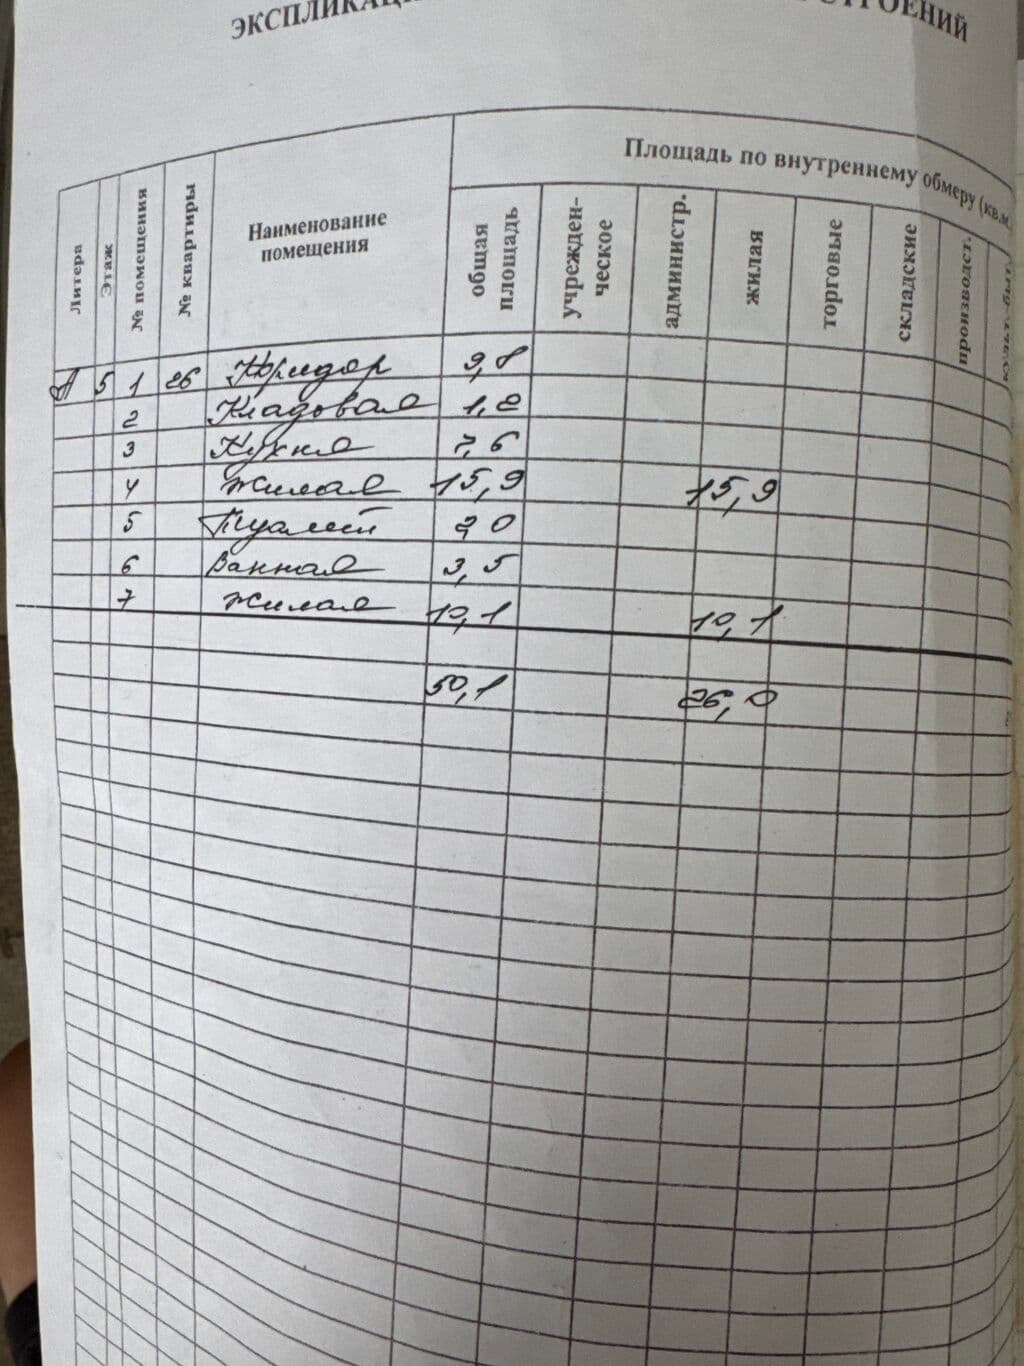 ЭКСПЛИКАЦИ СТРОЕНИЙ
Литера Этаж № помещения № квартиры Наименование помещения Площадь по внутреннему обмеру (кв.м.
общая площадь учрежден-ческое администр. жилая торговые складские производст. культ.-быт.
А 5 1 26 Коридор 9,8
2 Кладовая 1,2
3 Кухня 7,6
4 Жилая 15,9 15,9
5 Туалет 2,0
6 Ванная 3,5
7 Жилая 10,1 10,1
50,1 26,0